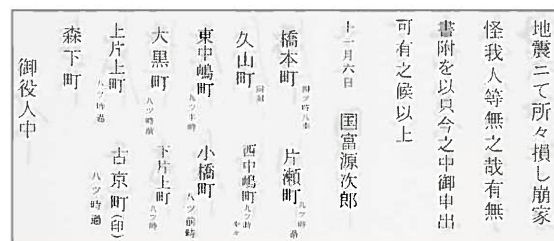 地震ニて所々損し崩家
怪我人等無之哉有無
書附を以只今之中御申出
可有之候以上
十一月六日　国富源次郎
橋本町　片瀬町
久山町 同刻　西中嶋町
東中嶋町 九ツ半時　小橋町 八ツ前時
大黒町 八ツ時前　下片上町 八ツ時
上片上町 八ツ時過　古京町(印) 八ツ時過
森下町
御役人中